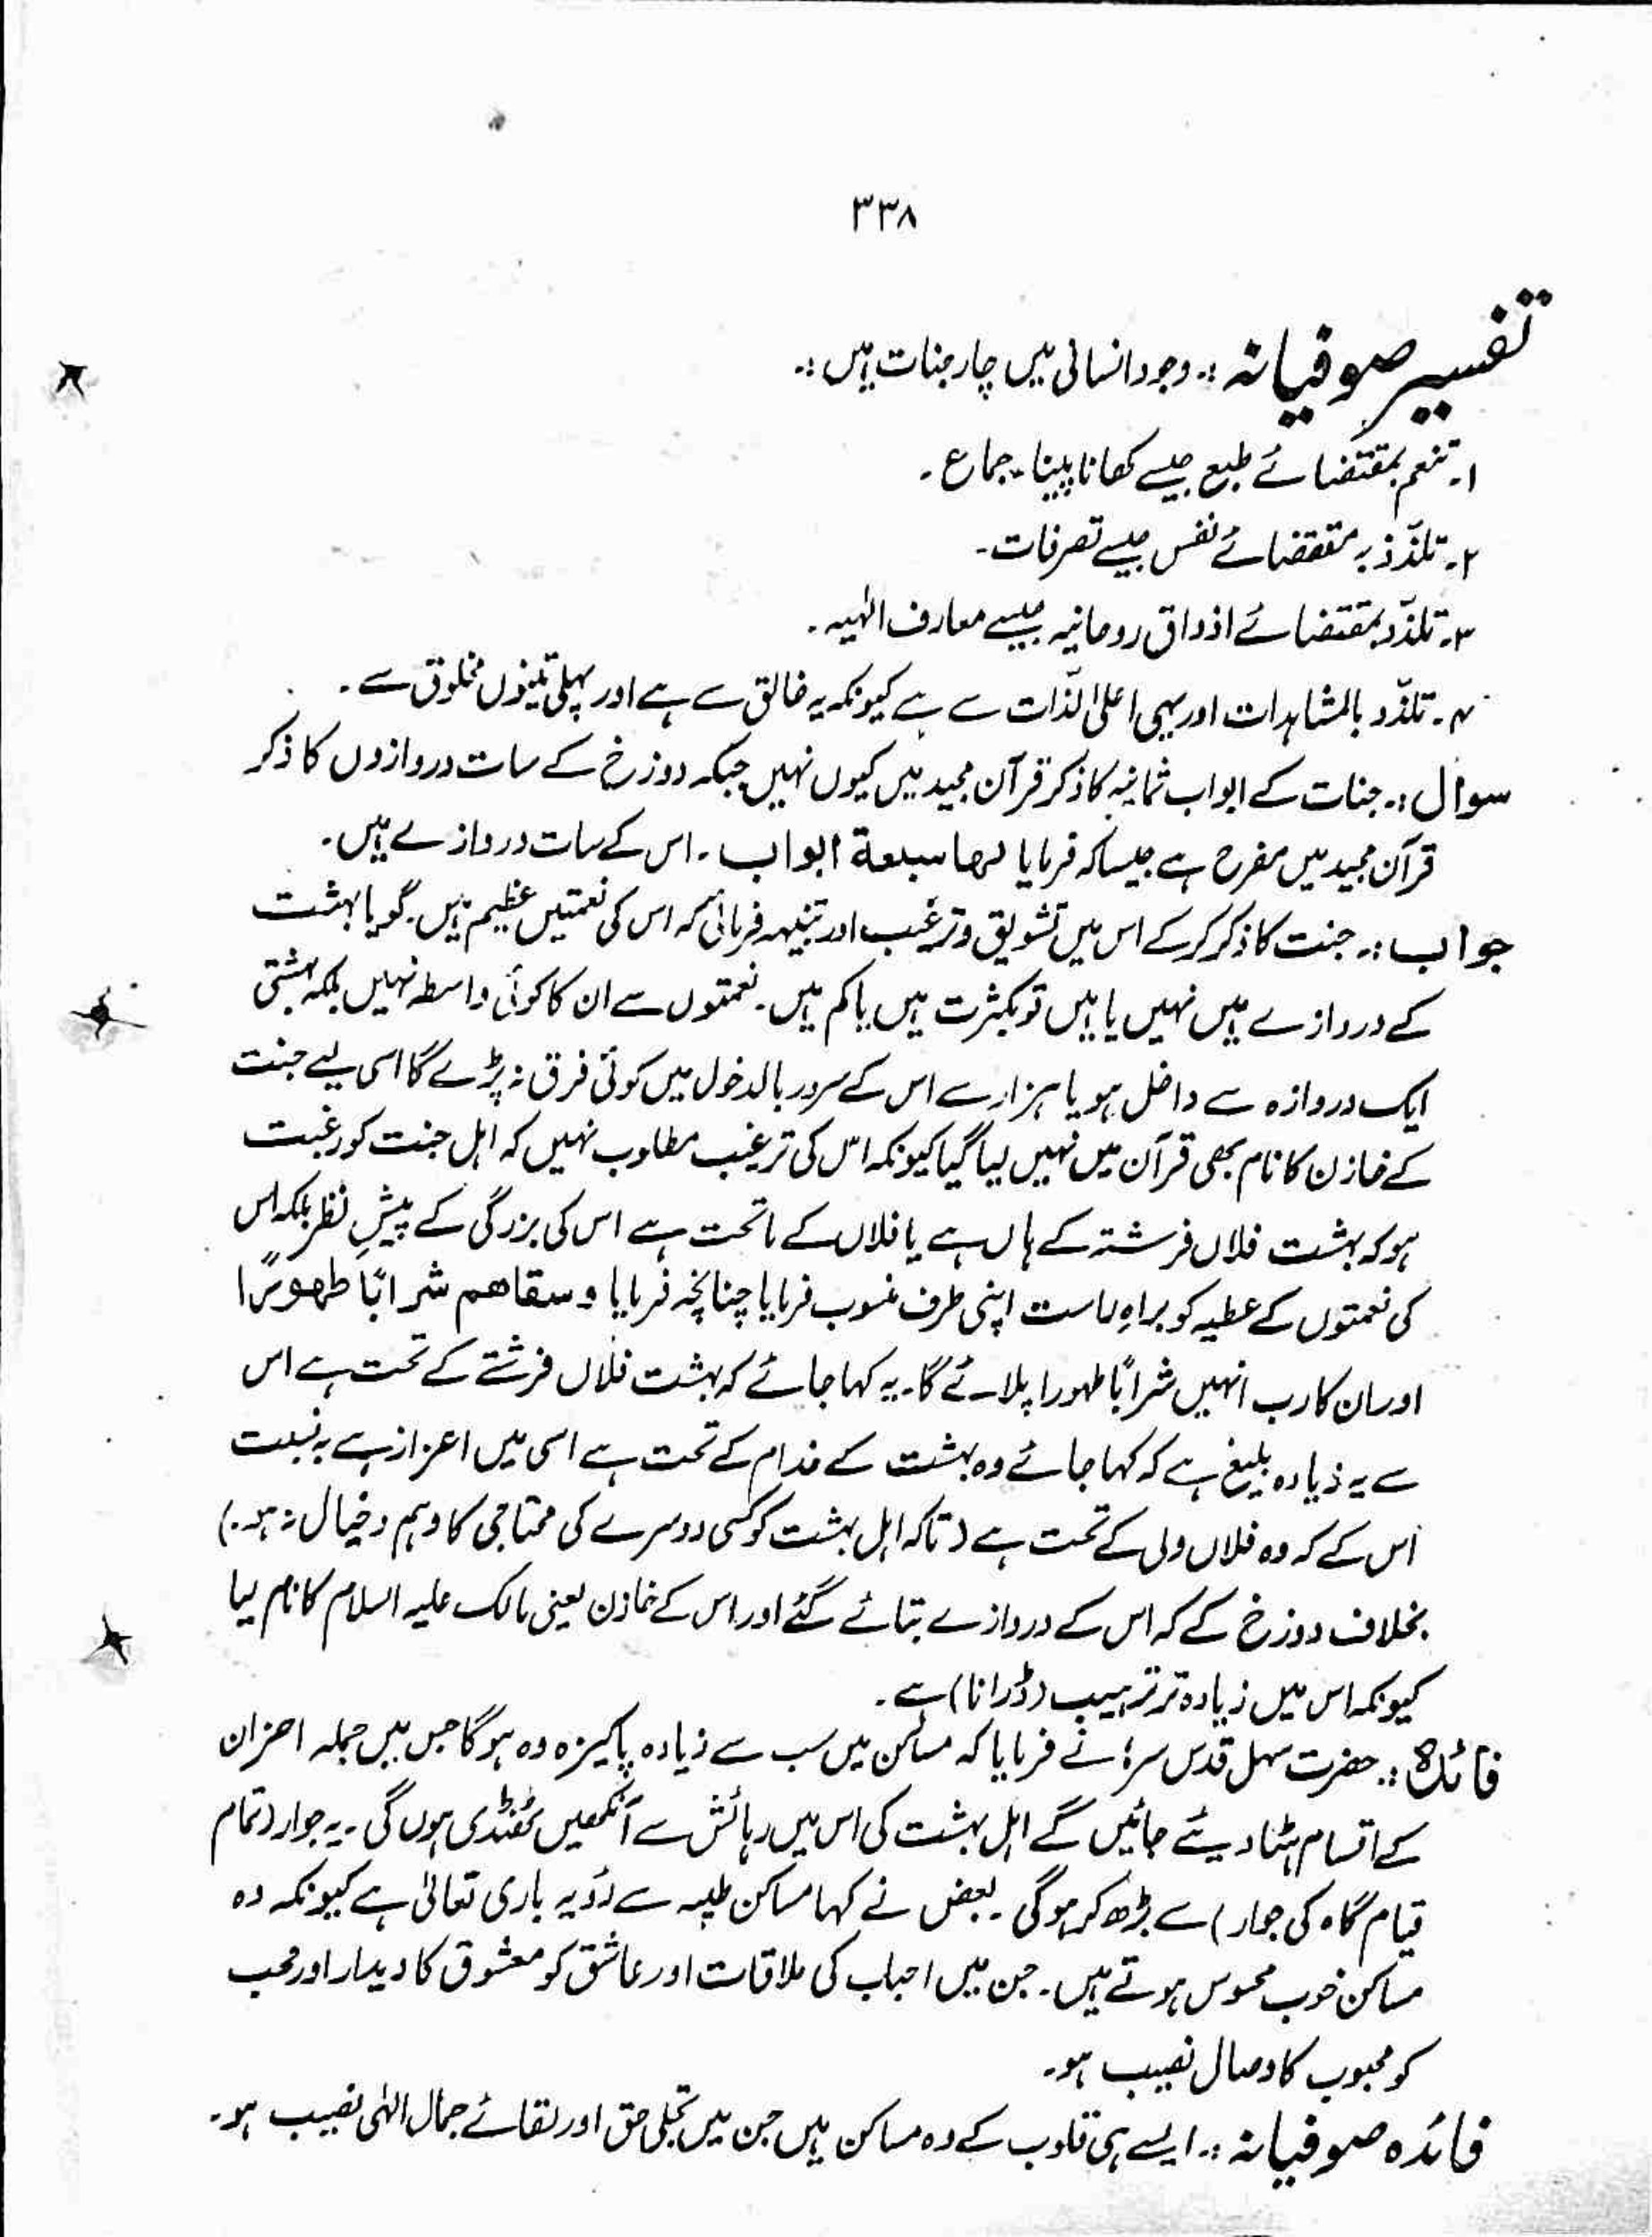 ۳۳۸
تفسیر صوفیانہ :۔ وجود انسانی میں چار جنات ہیں :۔
۱۔ تنعم بمقتضائے طبع جیسے کھانا پینا۔ جماع۔
۲۔ تلذّذ بہ مقتضائے نفس جیسے تصرفات۔
۳۔ تلذّد بمقتضائے اذواق روحانیہ جیسے معارف الٰہیہ۔
۴۔ تلذّد بالمشاہدات اور یہی اعلیٰ لذّات سے ہے کیونکہ یہ خالق سے ہے اور پہلی تینوں مخلوق سے۔
سوال :۔ جنات کے ابواب ثمانیہ کا ذکر قرآن مجید میں کیوں نہیں جبکہ دوزخ کے سات دروازوں کا ذکر
قرآن مجید میں مصرح ہے جیسا کہ فرمایا لہا سبعة ابواب۔ اس کے سات دروازے ہیں۔
جواب :۔ جنت کا ذکر کر کے اس میں تشویق و ترغیب اور تنبیہہ فرمائی کہ اس کی نعمتیں عظیم ہیں۔ گویا بہشت
کے دروازے ہیں نہیں یا ہیں تو بکثرت ہیں یا کم ہیں۔ نعمتوں سے ان کا کوئی واسطہ نہیں بلکہ بہشتی
ایک دروازہ سے داخل ہو یا ہزار سے اس کے سرور بالدخول میں کوئی فرق نہ پڑے گا اسی لیے جنت
کے خازن کا نام بھی قرآن میں نہیں لیا گیا کیونکہ اس کی ترغیب مطلوب نہیں کہ اہل جنت کو رغبت
ہو کہ بہشت فلاں فرشتہ کے ہاں ہے یا فلاں کے ماتحت ہے اس کی بزرگی کے پیشِ نظر بلکہ اس
کی نعمتوں کے عطیہ کو براہِ راست اپنی طرف منسوب فرمایا چنانچہ فرمایا و سقاھم شرابًا طھورًا
اور ان کا رب انہیں شرابًا طہورا پلائے گا۔ یہ کہا جائے کہ بہشت فلاں فرشتے کے تحت ہے اس
سے یہ زیادہ بلیغ ہے کہ کہا جائے وہ بہشت کے خدام کے تحت ہے اسی میں اعزاز ہے بہ نسبت
اس کے کہ وہ فلاں ولی کے تحت ہے (تاکہ اہل بہشت کو کسی دوسرے کی محتاجی کا وہم و خیال نہ ہو۔)
بخلاف دوزخ کے کہ اس کے دروازے بتائے گئے اور اس کے خازن یعنی مالک علیہ السلام کا نام لیا
کیونکہ اس میں زیادہ تر ترہیب (ڈرانا) ہے۔
فائدہ :۔ حضرت سہل قدس سرہٗ نے فرمایا کہ مساکن میں سب سے زیادہ پاکیزہ وہ ہوگا جس میں جملہ احزان
کے اقسام ہٹا دیئے جائیں گے اہل بہشت کی اس میں رہائش سے آنکھیں ٹھنڈی ہوں گی۔ یہ جوار (تمام
قیام گاہ کی جوار) سے بڑھ کر ہوگی۔ بعض نے کہا مساکن طیبہ سے رؤیہ باری تعالیٰ ہے کیونکہ وہ
مساکن خوب محسوس ہوتے ہیں۔ جن میں احباب کی ملاقات اور عاشق کو معشوق کا دیدار اور محب
کو محبوب کا وصال نصیب ہو۔
فائدہ صوفیانہ :۔ ایسے ہی قلوب کے وہ مساکن ہیں جن میں تجلی حق اور لقائے جمال الٰہی نصیب ہو۔